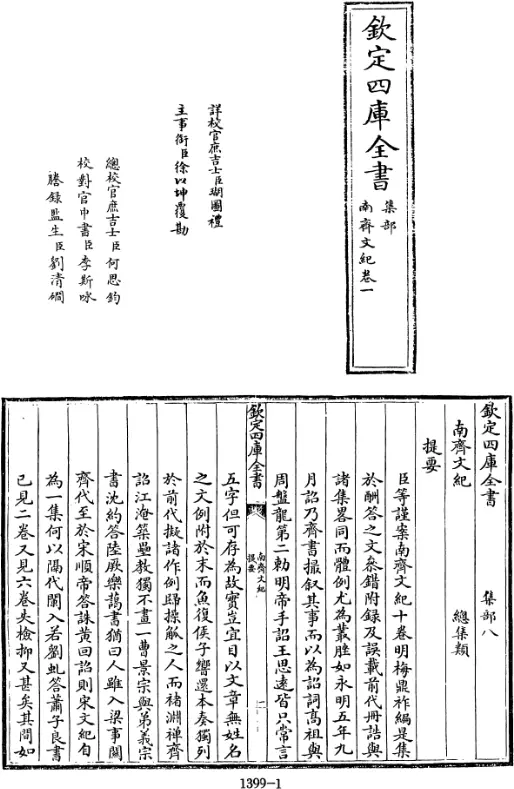 欽定四庫全書
集部
南齊文紀卷一
詳校官庶吉士臣瑚圖禮
主事銜臣徐以坤覆勘
總校官庶吉士臣何思鈞
校對官中書臣李斯咏
謄錄監生臣劉清
欽定四庫全書 集部八
南齊文紀 總集類
提要
臣等謹案南齊文紀十卷明梅鼎祚編是集
於酬答之文叅錯附録及誤載前代冊誥與
諸集畧同而體例尤為叢脞如永明五年九
月詔乃齊書撮叙其事而以為詔詞高祖與
周盤龍第二勅明帝手詔王思遠皆只常言
欽定四庫全書
南齊文紀
提要
二
五字但可存為故實豈宜目以文章無姓名
之文例附於末而魚復侯子響還本奏獨列
於前代擬諸作例歸操觚之人而褚淵禪齊
詔江淹築壘教獨不畫一曹景宗與弟義宗
書沈約答陸厥樂藹書猶曰人雖入梁事闗
齊代至於宋順帝答誅黄回詔則宋文紀自
為一集何以隔代闌入若劉虬答蕭子良書
已見二卷又見六卷失檢抑又甚矣其間如
1399-1